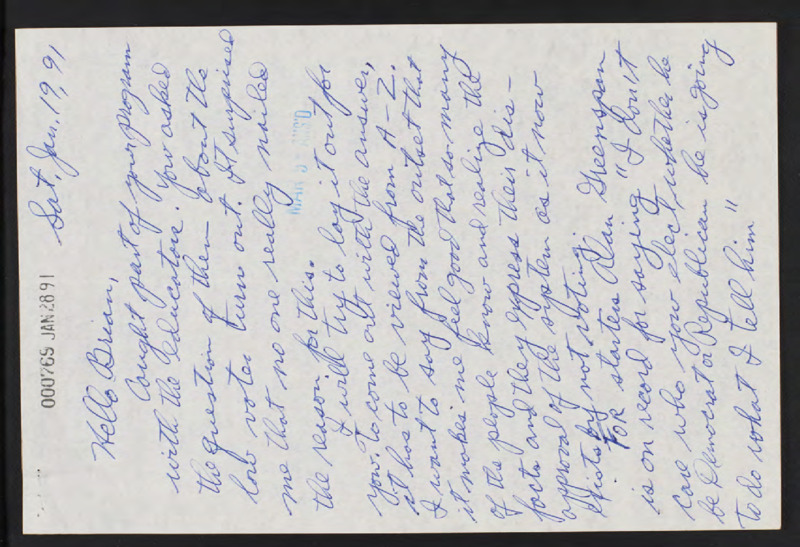 000765 JAN 28 91
Sat, Jan. 19, 91
Hello Brian,
Caught part of your program
with the educators. You asked
the question of them about the
low voter turn out. It surprised
me that no one really nailed
the reason for this.
I will try to lay it out for
you. To come out with the answer,
it has to be viewed from A-Z.
I want to say from the outset that
it makes me feel good that so many
of the people know and realize the
facts and they express their dis-
approval of the system as it now
exists by not voting.
For starters Alan Greenspan
is on record for saying "I don't
care who you elect, whether he
be Democrat or Republican he is going
to do what I tell him"